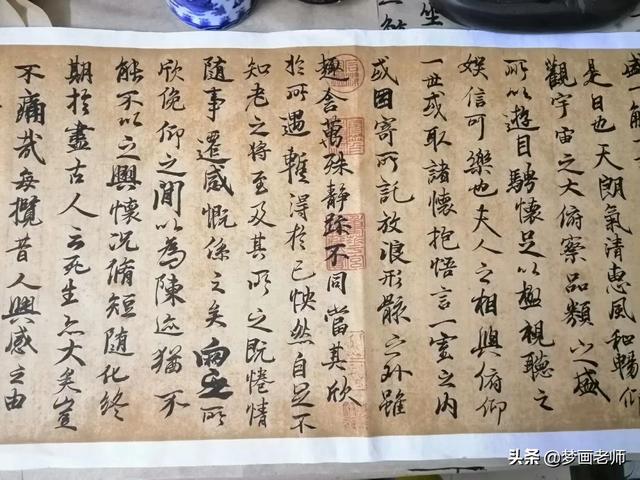 盛一觴一
是日也天朗氣清惠風和暢仰
觀宇宙之大俯察品類之盛
所以遊目騁懷足以極視聽之
娛信可樂也夫人之相與俯仰
一世或取諸懷抱悟言一室之內
或因寄所託放浪形骸之外雖
趣舍萬殊靜躁不同當其欣
於所遇輙得於己怏然自足不
知老之將至及其所之既惓情
隨事遷感慨係之矣向之所
欣俛仰之閒以為陳迹猶不
能不以之興懷況脩短隨化終
期於盡古人云死生亦大矣豈
不痛哉每攬昔人興感之由
头条 @梦画老师